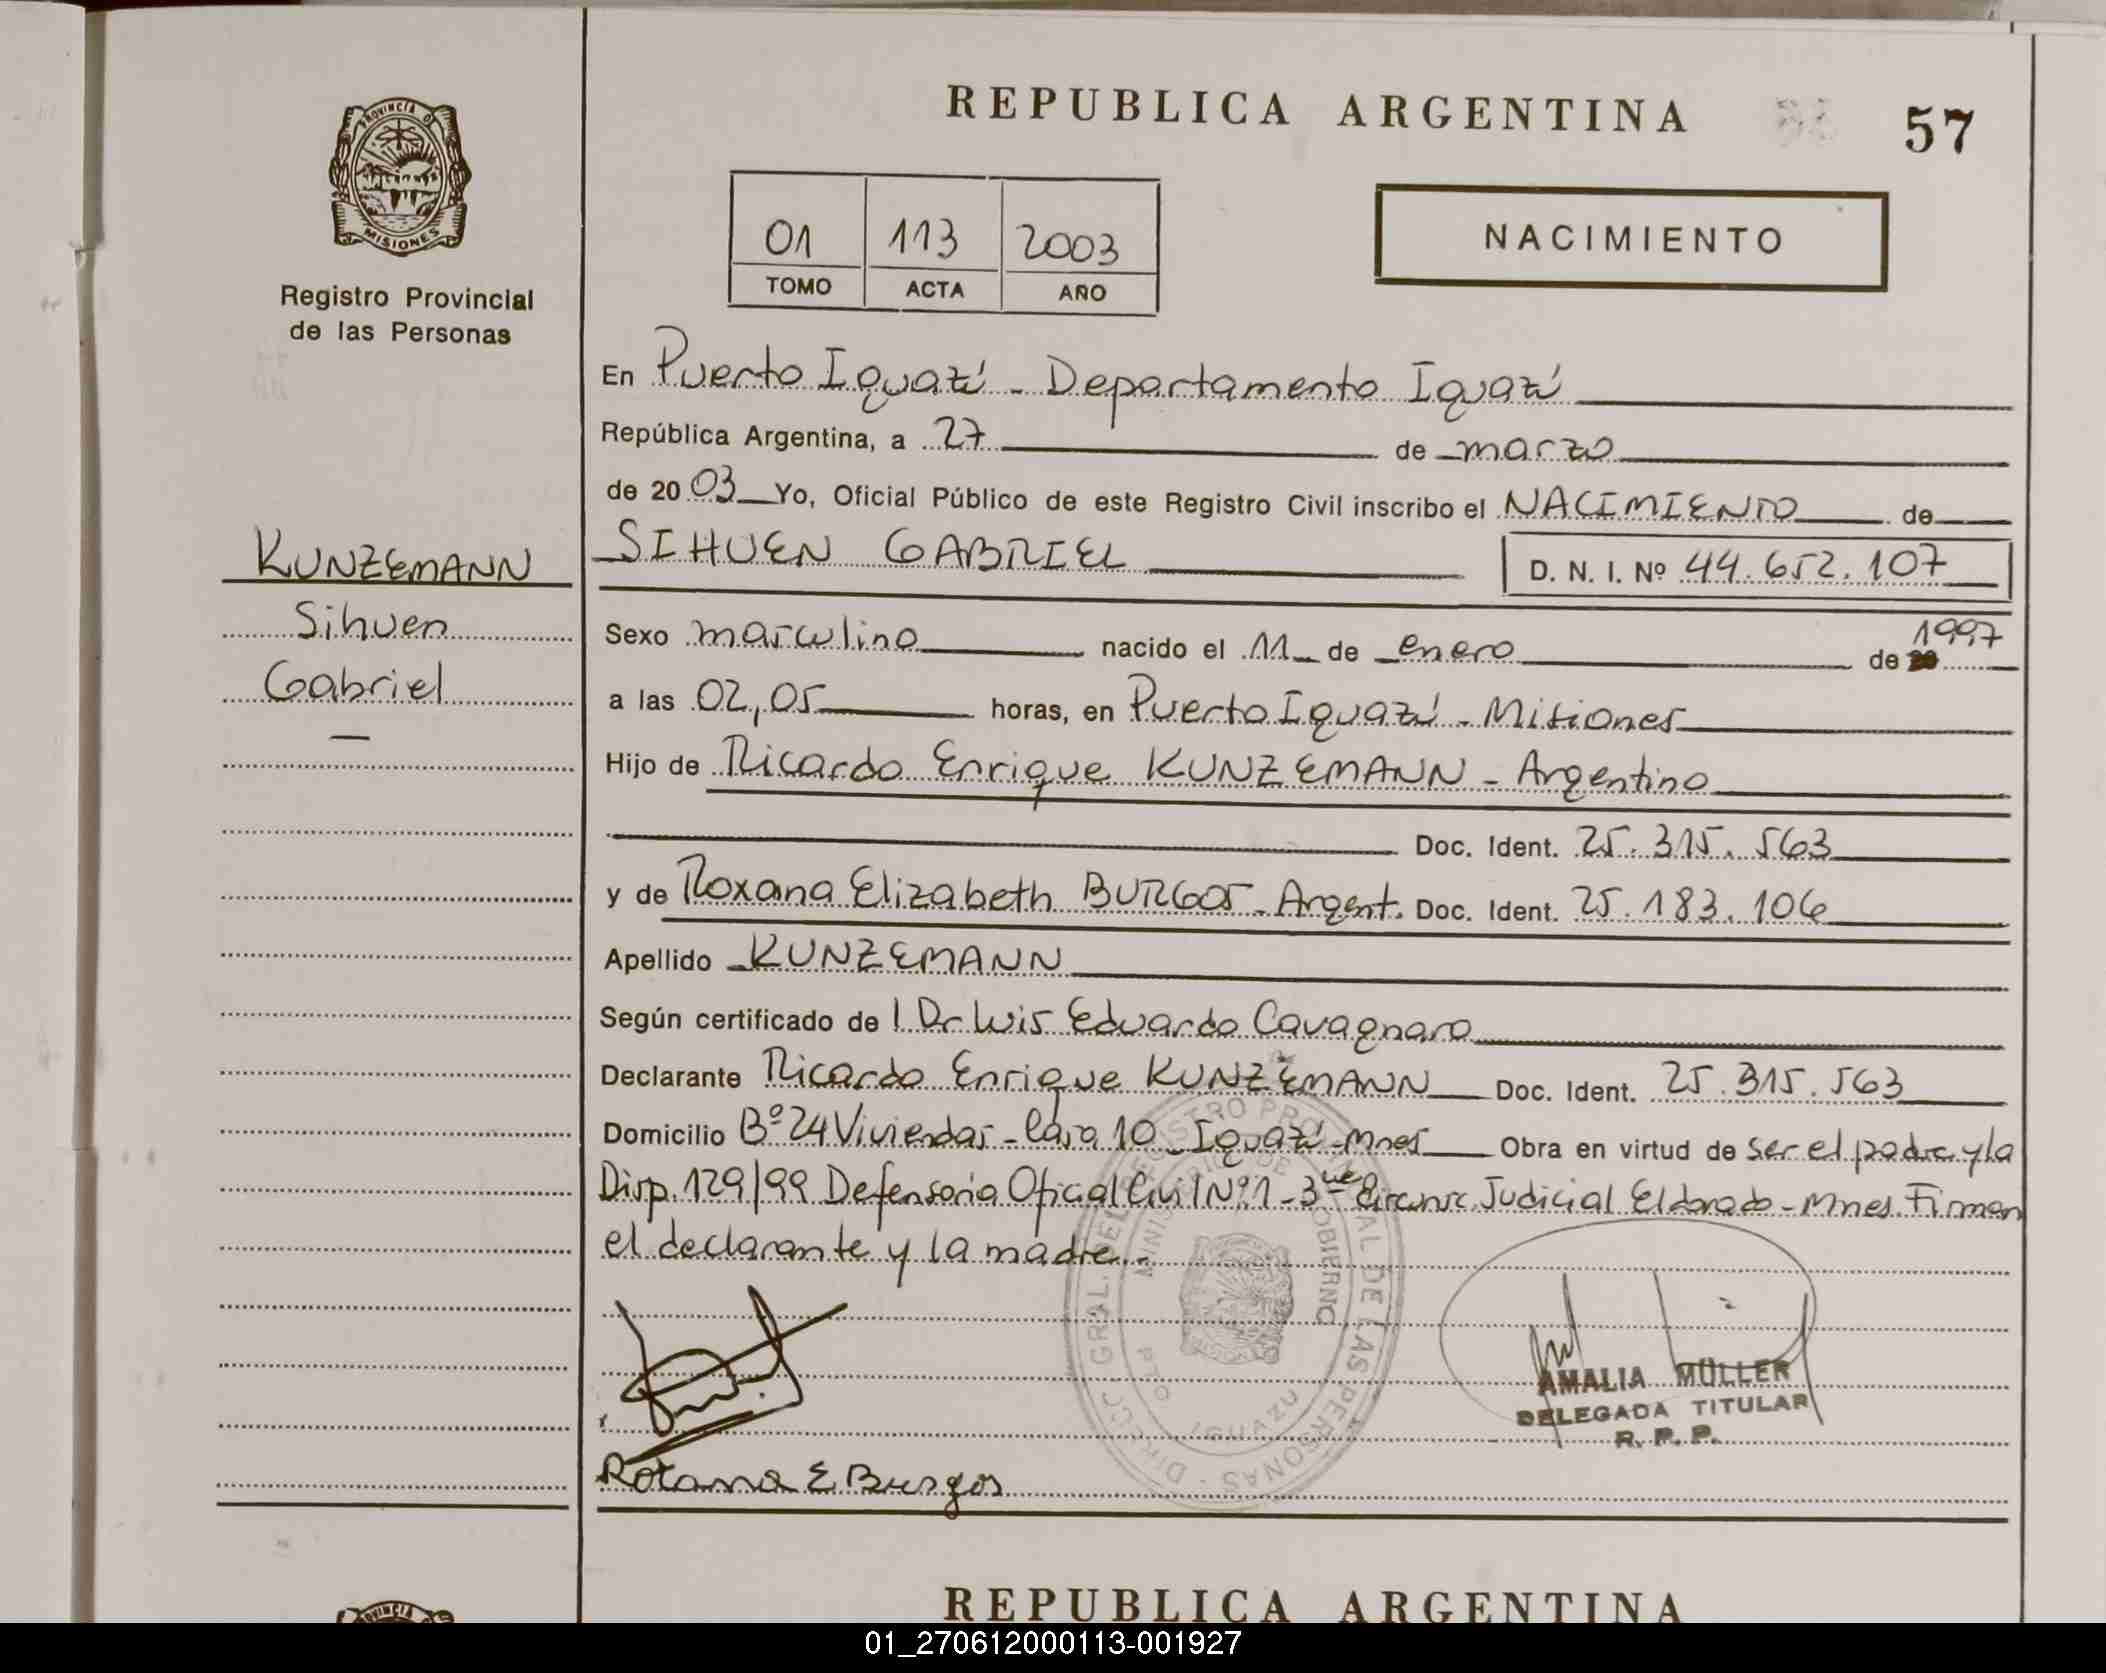 REPUBLICA ARGENTINA
57
PROVINCIA D
MISIONES
Registro Provincial
de las Personas
01 113 2003
TOMO ACTA AÑO
NACIMIENTO
En Puerto Iguazú - Departamento Iguazú
República Argentina, a 27 de marzo
de 2003 Yo, Oficial Público de este Registro Civil inscribo el NACIMIENTO de
KUNZEMANN
Sihuen
Gabriel
SIHUEN GABRIEL D. N. I. Nº 44.652.107
Sexo masculino nacido el 11 de enero de 1997
a las 02,05 horas, en Puerto Iguazú - Misiones
Hijo de Ricardo Enrique KUNZEMANN - Argentino
Doc. Ident. 25.315.563
y de Roxana Elizabeth BURGOS - Argent. Doc. Ident. 25.183.106
Apellido KUNZEMANN
Según certificado de l Dr Luis Eduardo Cavagnaro
Declarante Ricardo Enrique KUNZEMANN Doc. Ident. 25.315.563
Domicilio Bº 24 Viviendas - Casa 10 - Iguazú - Mnes Obra en virtud de ser el padre y la
Disp. 129/99 Defensoria Oficial Civil Nº 1 - 3 Circunsc. Judicial Eldorado - Mnes. Firman
el declarante y la madre.-
DIRECC. GRAL. DEL REGISTRO PROVINCIAL DE LAS PERSONAS
MINISTERIO DE GOBIERNO
PTO IGUAZU
AMALIA MÜLLER
DELEGADA TITULAR
R. P. P.
Roxana E Burgos
PROVINCIA
REPUBLICA ARGENTINA
01_270612000113-001927